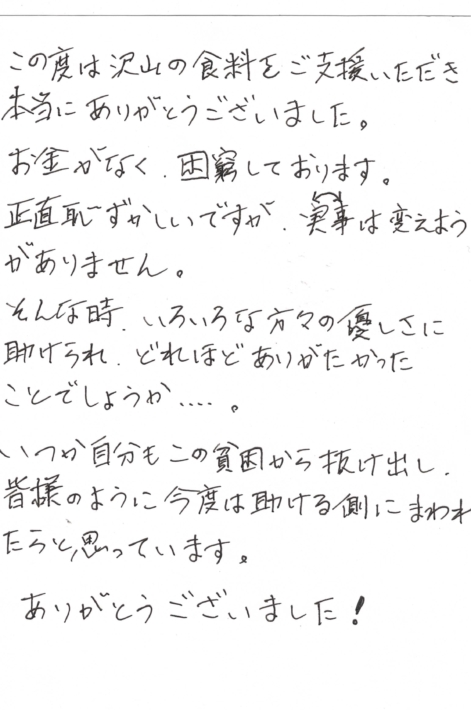 この度は沢山の食料をご支援いただき
本当にありがとうございました。
お金がなく、困窮しております。
正直恥ずかしいですが、実事は変えよう
がありません。
そんな時、いろいろな方々の優しさに
助けられ、どれほどありがたかった
ことでしょうか....。
いつか自分もこの貧困から抜け出し、
皆様のように今度は助ける側にまわれ
たらと思っています。
ありがとうございました!